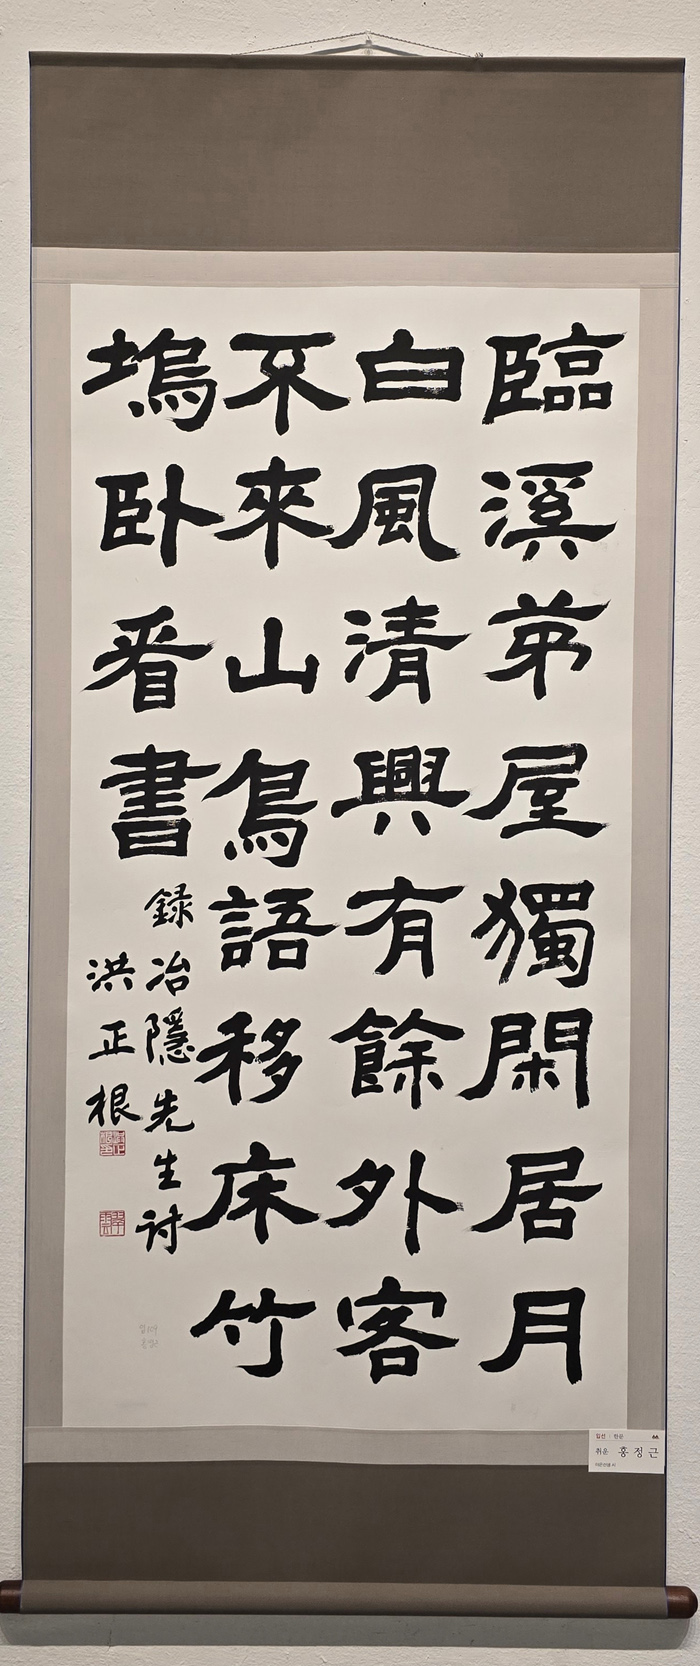 臨溪茅屋獨閑居月
白風清興有餘外客
不來山鳥語移床竹
塢卧看書
録冶隱先生詩
洪正根
입선 | 한문
취운 홍정근
야은선생 시